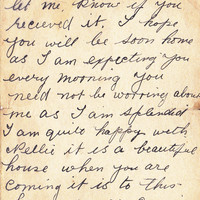 let me know if you
recieved it. I hope
you will be soon home
as I am expecting you
every morning you
need not be worring about
me as I am splended
I am quite happy with
Nellie it is a beautiful
house when you are
coming it is to this